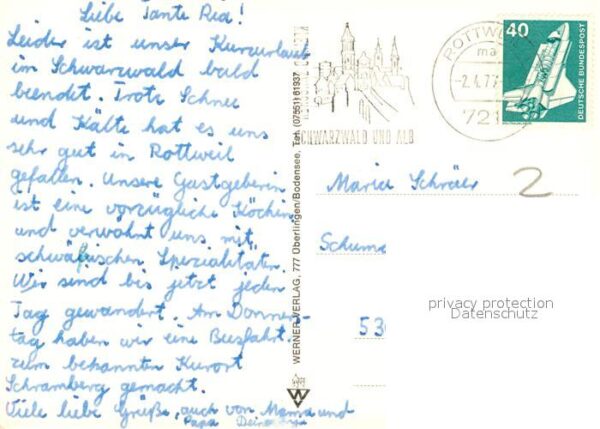 Liebe Tante Ria!
Leider ist unser Kurzurlaub
im Schwarzwald bald
beendet. Trotz Schnee
und Kälte hat es uns
sehr gut in Rottweil
gefallen. Unsere Gastgeberin
ist eine vorzügliche Köchin
und verwöhnt uns mit
schwäbischen Spezialitäten.
Wir sind bis jetzt jeden
Tag gewandert. Am Donners-
tag haben wir eine Busfahrt
zum bekannten Kurort
Schramberg gemacht.
Viele liebe Grüße, auch von Mama und
Papa Deine
WERNER-VERLAG, 777 Überlingen/Bodensee, Tel. (07551) 61937
SCHWARZWALD UND ALB
ROTTW
-2.4.77
721
40
DEUTSCHE BUNDESPOST
Maria
2
Schum
53
privacy protection
Datenschutz